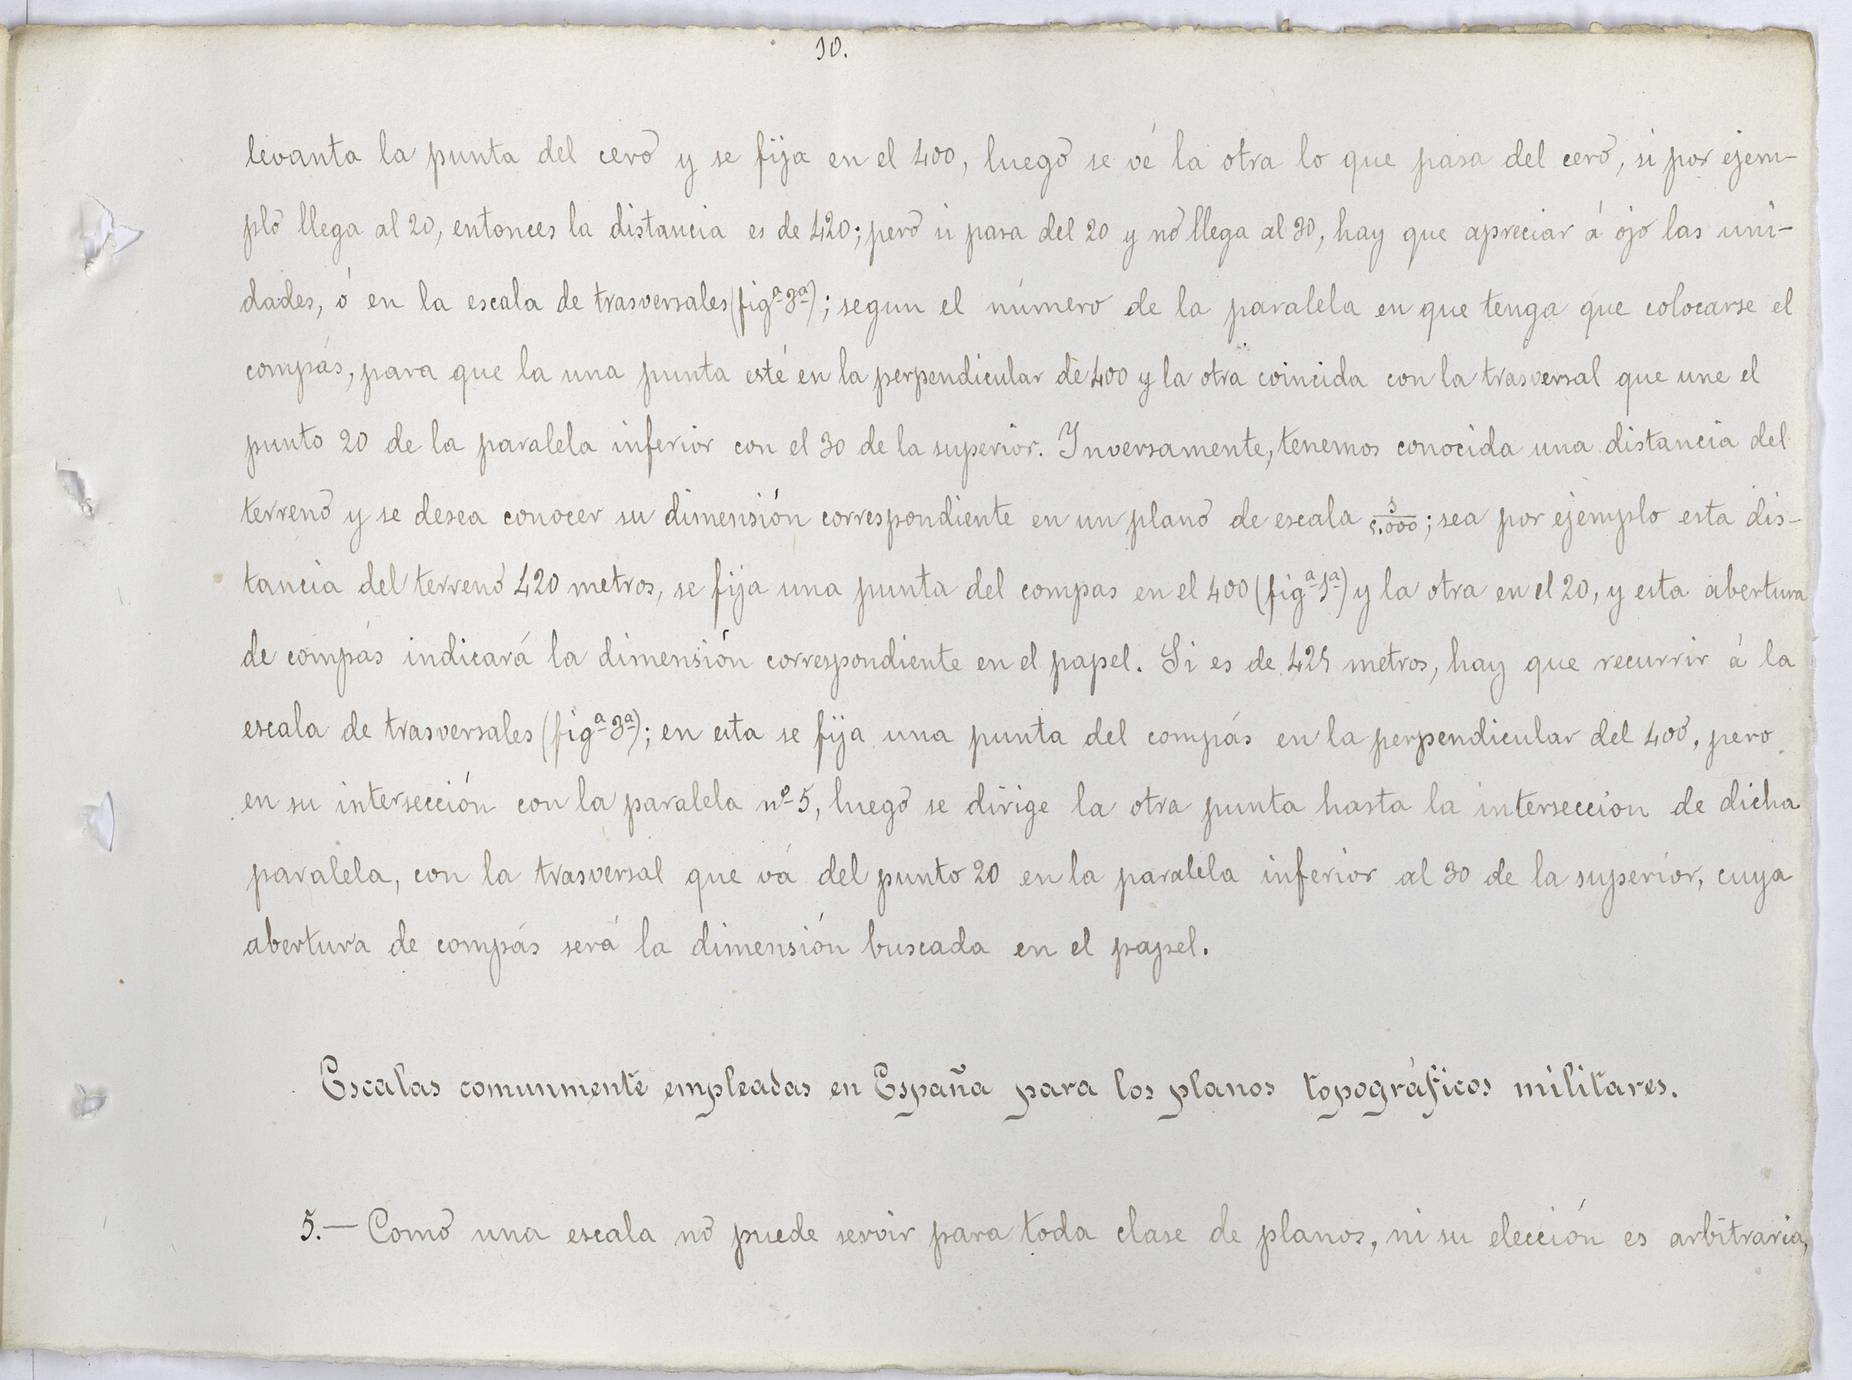 10.
levanta la punta del cero y se fija en el 400, luego se vé la otra lo que pasa del cero, si por ejem-
plo llega al 20, entonces la distancia es de 420; pero si pasa del 20 y no llega al 30, hay que apreciar á ojo las uni-
dades, ó en la escala de trasversales (figª 3ª); segun el número de la paralela en que tenga que colocarse el
compás, para que la una punta esté en la perpendicular de 400 y la otra coincida con la trasversal que une el
punto 20 de la paralela inferior con el 30 de la superior. Inversamente, tenemos conocida una distancia del
terreno y se desea conocer su dimensión correspondiente en un plano de escala 1/5.000; sea por ejemplo esta dis-
tancia del terreno 420 metros, se fija una punta del compas en el 400 (figª 1ª) y la otra en el 20, y esta abertura
de compás indicará la dimensión correspondiente en el papel. Si es de 425 metros, hay que recurrir á la
escala de trasversales (figª 3ª); en esta se fija una punta del compás en la perpendicular del 400, pero
en su intersección con la paralela nº 5, luego se dirige la otra punta hasta la interseccion de dicha
paralela, con la trasversal que vá del punto 20 en la paralela inferior al 30 de la superior, cuya
abertura de compás será la dimensión buscada en el papel.
Escalas comunmente empleadas en España para los planos topográficos militares.
5.— Como una escala no puede servir para toda clase de planos, ni su elección es arbitraria,